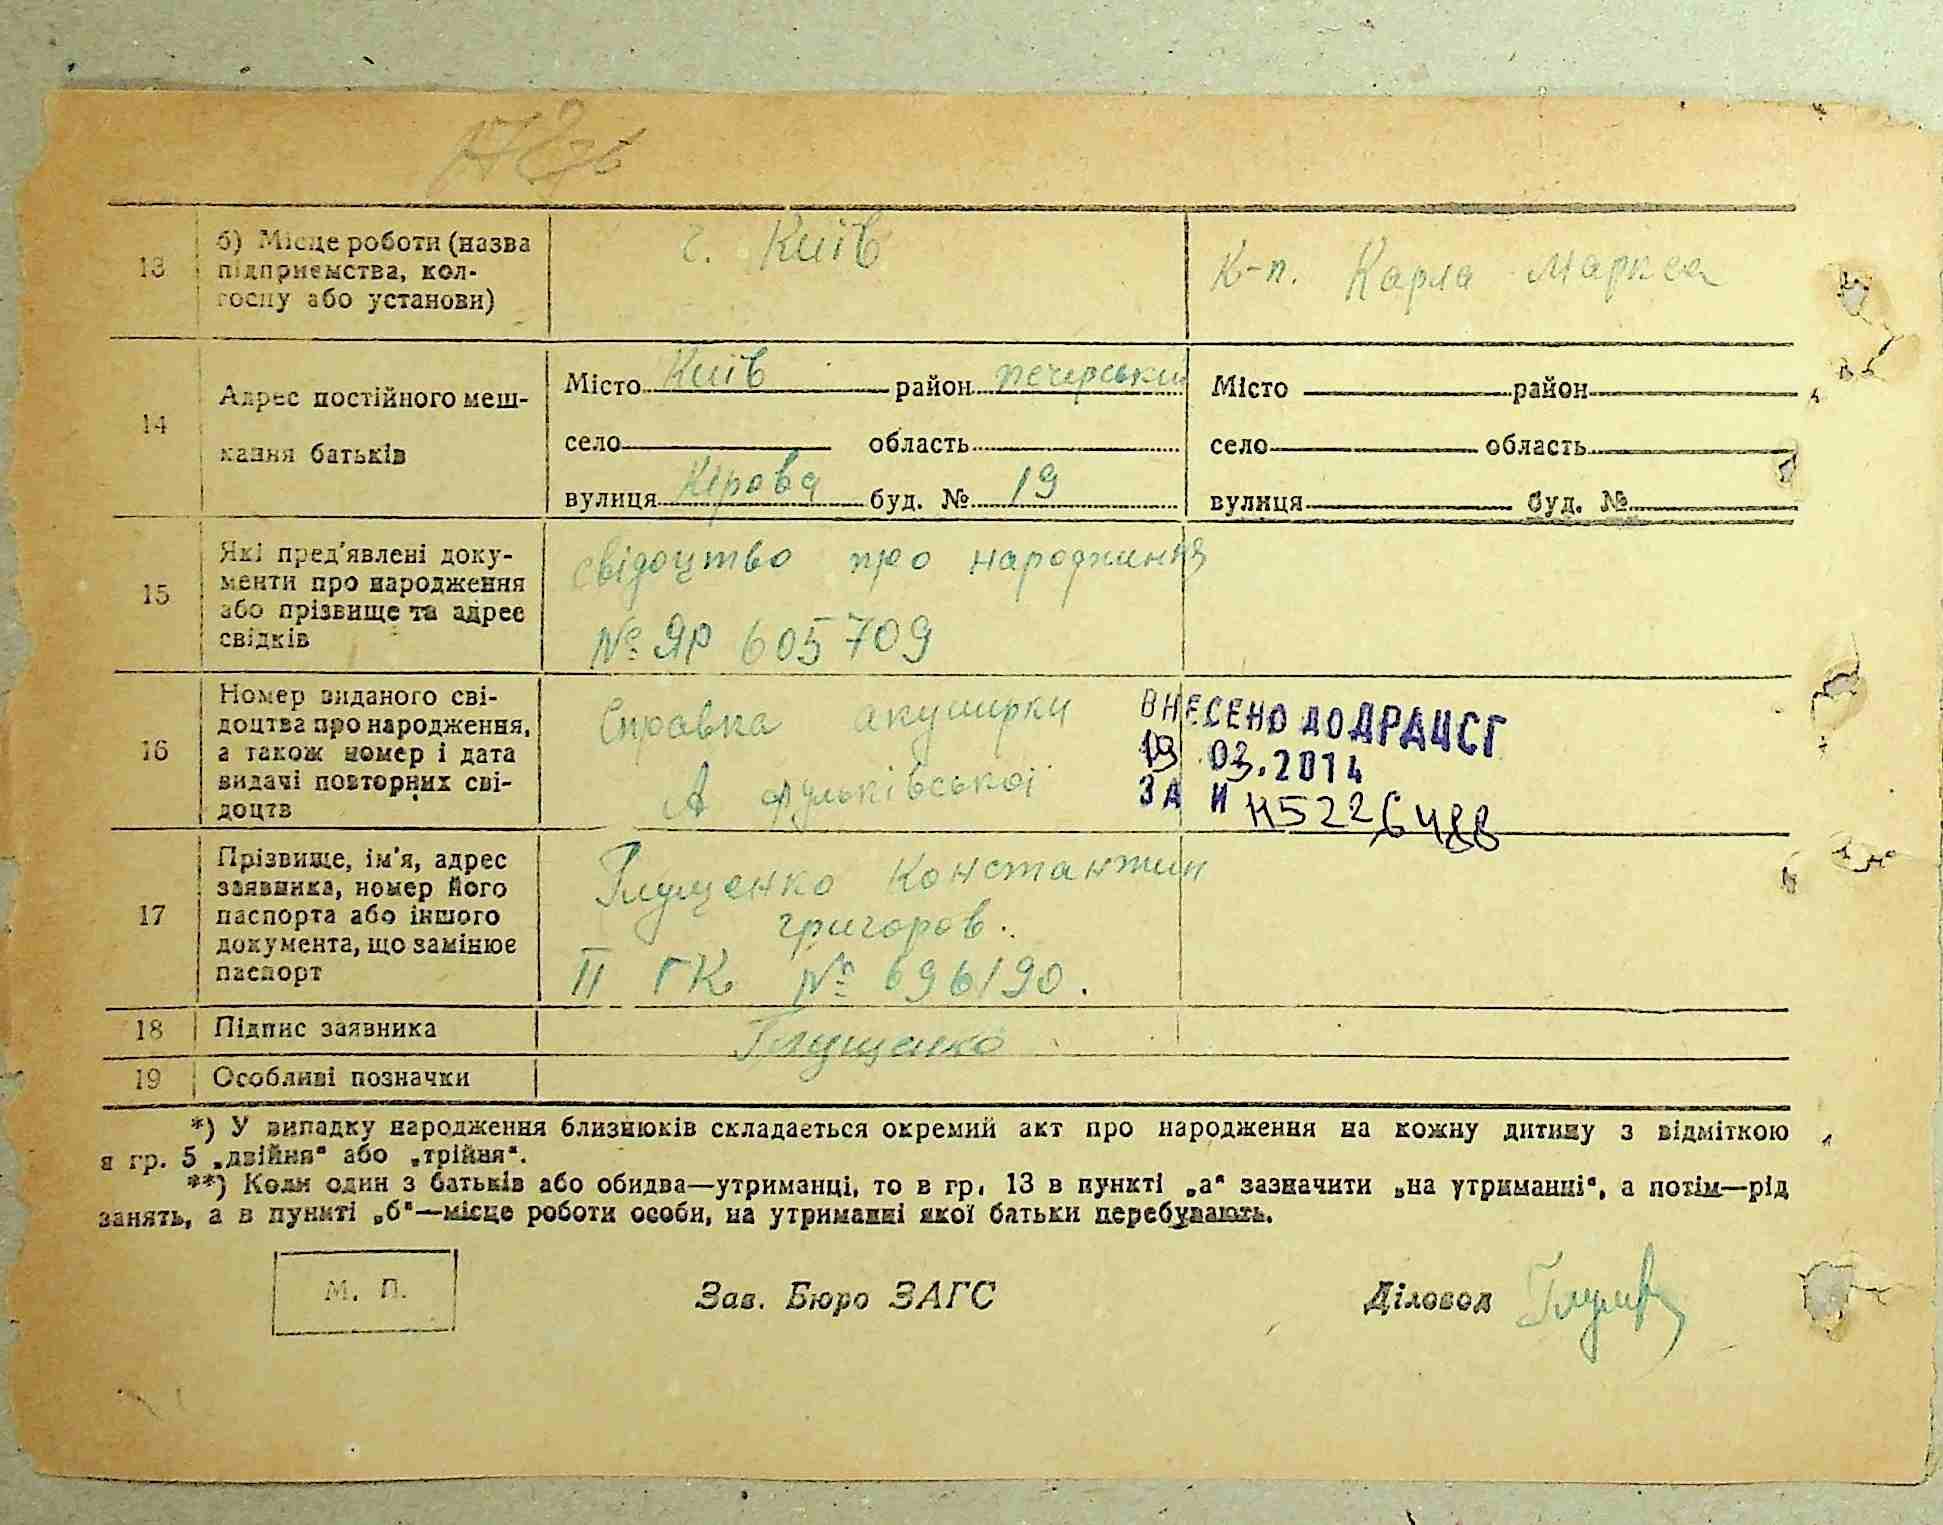 13
б) Місце роботи (назва
підприємства, кол-
госпу або установи)
г. Київ
К-п. Карла Маркса
14
Адрес постійного меш-
кання батьків
Місто Київ район печерський
село область
вулиця Кірова буд. № 19
Місто район
село область
вулиця буд. №
15
Які пред'явлені доку-
менти про народження
або прізвище та адрес
свідків
свідоцтво про народження
№ ЯР 605709
16
Номер виданого сві-
доцтва про народження,
а також номер і дата
видачі повторних сві-
доцтв
Справка акуширки
А фульківської
ВНЕСЕНО ДО ДРАЦСГ
19 03.2014
ЗА И
17
Прізвище, ім'я, адрес
заявника, номер його
паспорта або іншого
документа, що замінює
паспорт
Глущенко Константин
григоров.
II ГК № 696190.
18
Підпис заявника
Глущенко
19
Особливі позначки
*) У випадку народження близнюків складається окремий акт про народження на кожну дитину з відміткою
я гр. 5 „двійня" або „трійня".
**) Коли один з батьків або обидва—утриманці, то в гр. 13 в пункті „а" зазначити „на утриманні", а потім—рід
занять, а в пункті „б"—місце роботи особи, на утриманні якої батьки перебувають.
М. П.
Зав. Бюро ЗАГС
Діловод